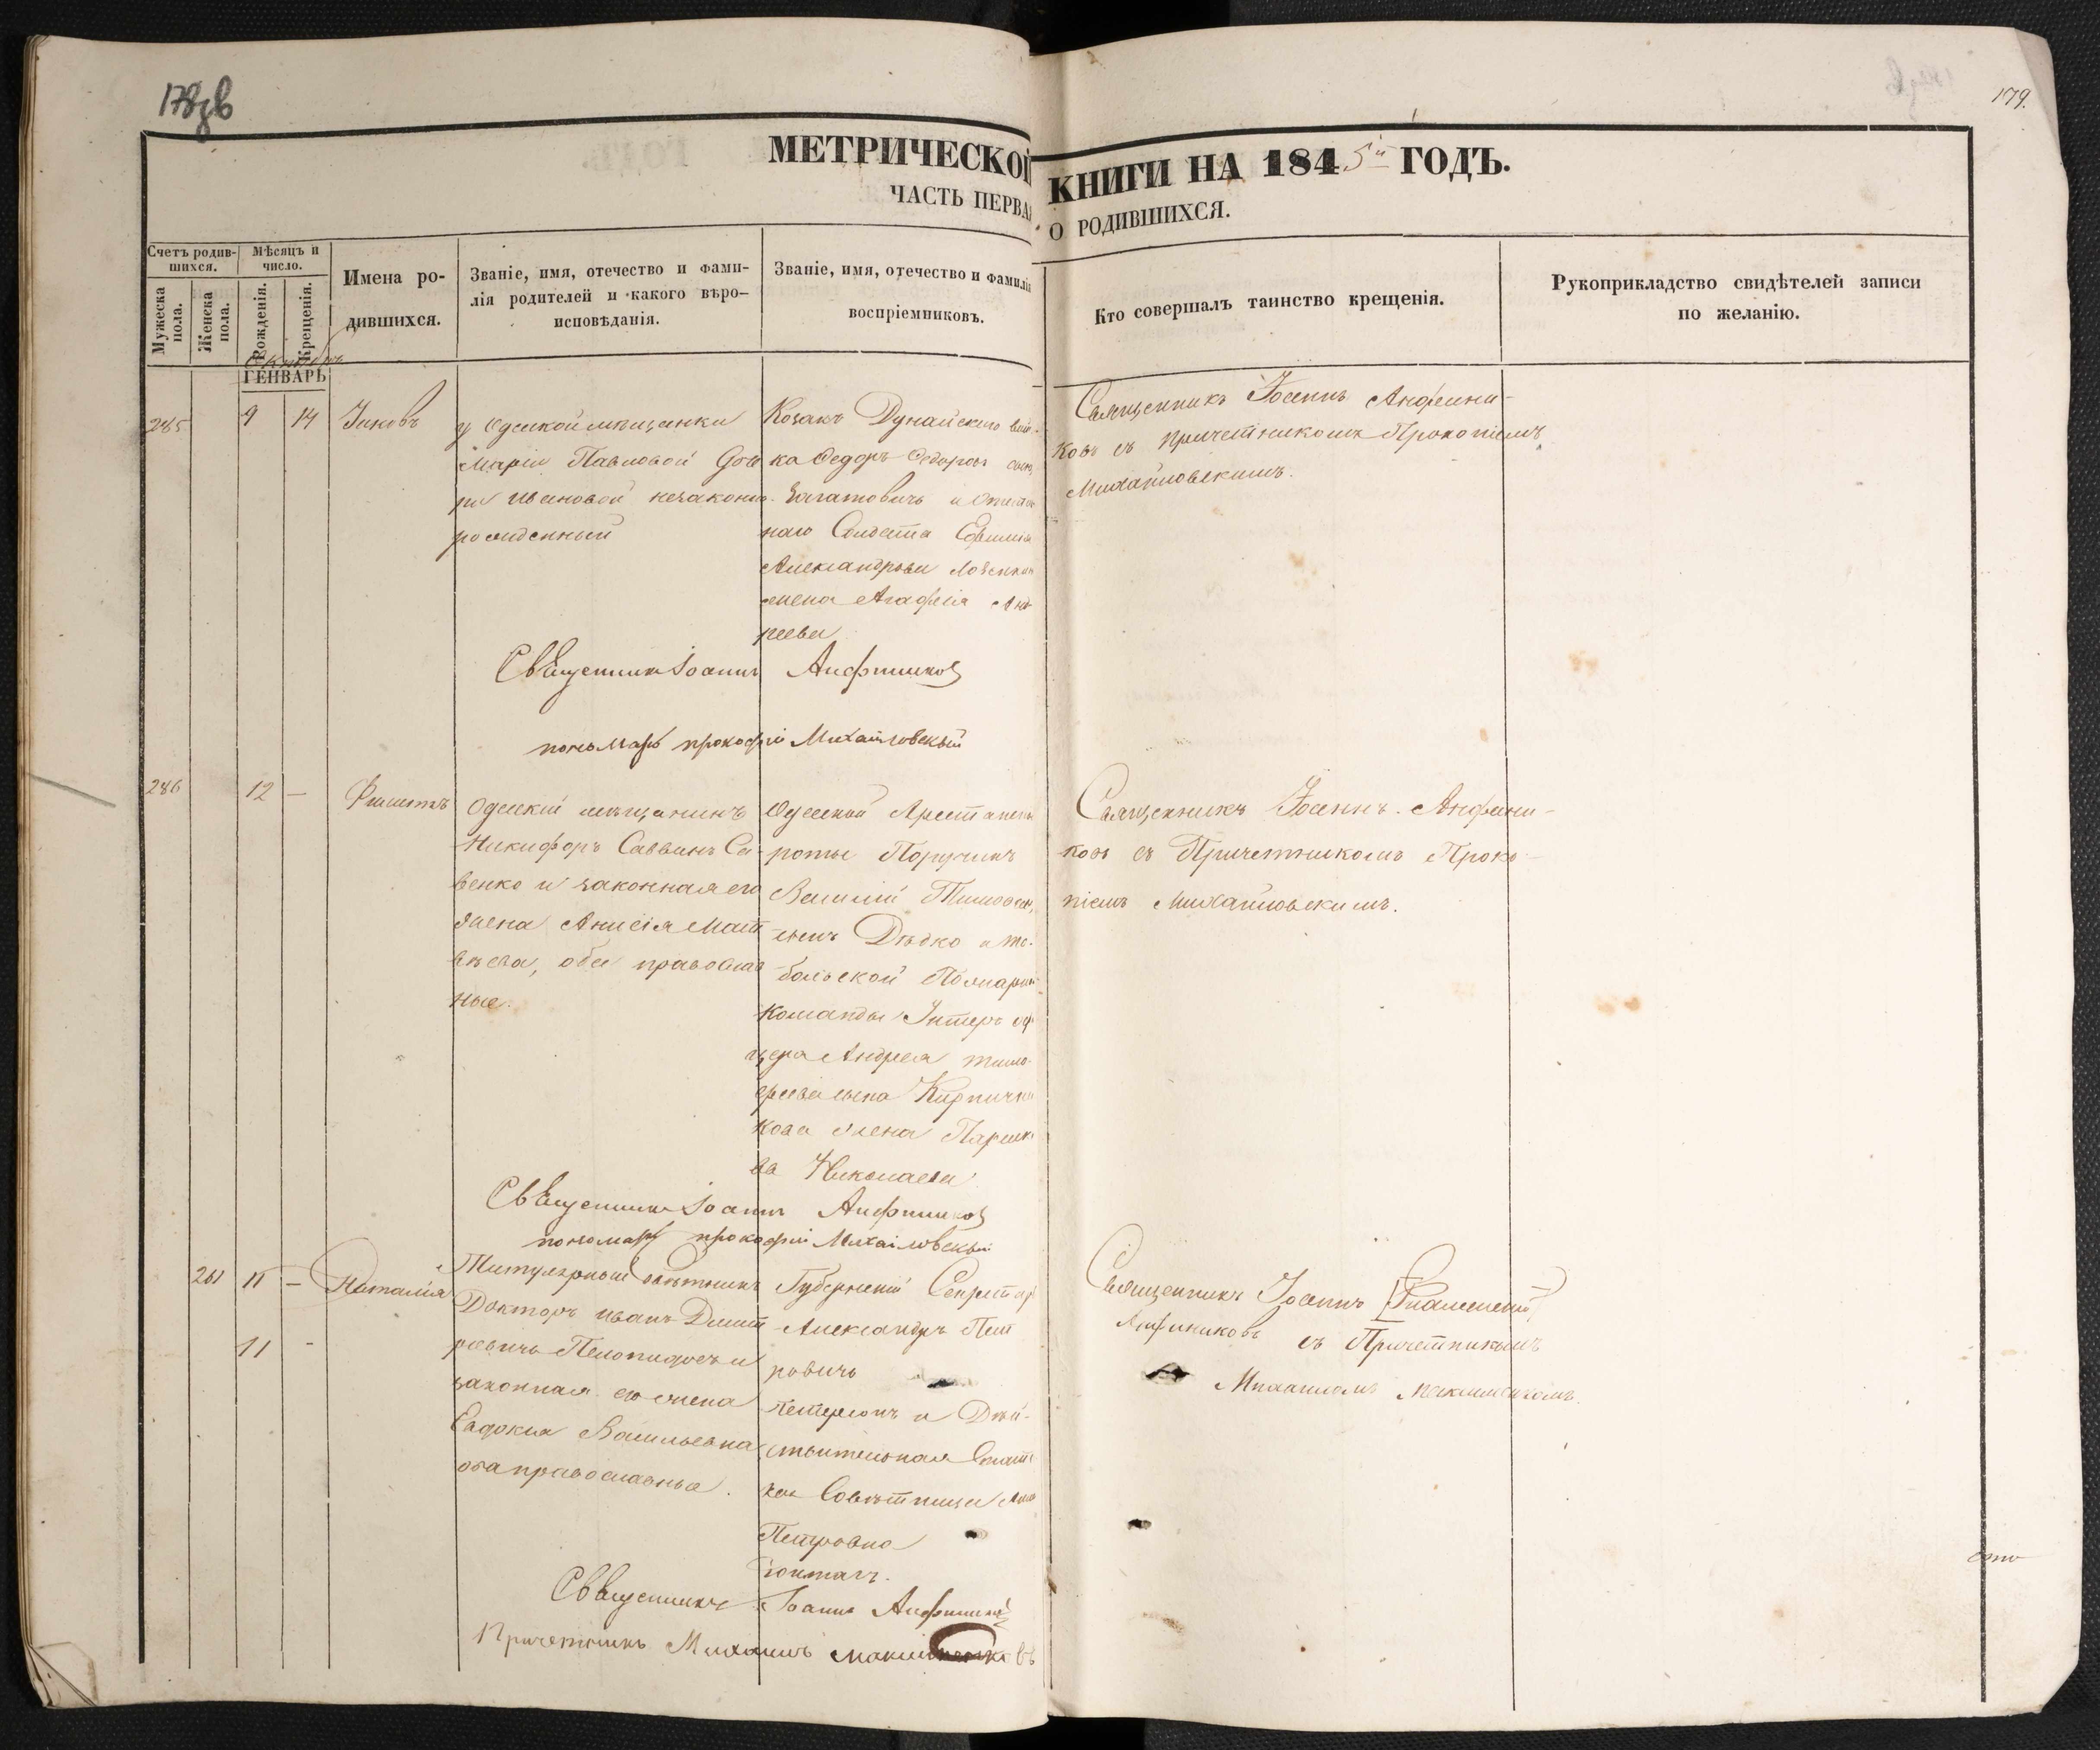 178зв
179.
МЕТРИЧЕСКОЙ КНИГИ НА 1845й ГОДЪ.
ЧАСТЬ ПЕРВАЯ О РОДИВШИХСЯ.
Счетъ родив-
шихся.
Мужеска
пола.
Женска
пола.
Мѣсяцъ и
число.
Рожденія.
Крещенія.
Имена ро-
дившихся.
Званіе, имя, отечество и фами-
лія родителей и какого вѣро-
исповѣданія.
Званіе, имя, отечество и фамилія
воспріемниковъ.
Кто совершалъ таинство крещенія.
Рукоприкладство свидѣтелей записи
по желанію.
ГЕНВАРЬ
285
9
14
Іаковъ
у Одеской мѣщанки
Маріи Павловой
Ивановой незаконно
рожденный
Козакъ Дунайскаго вой-
ка Ѳедоръ Ѳедоровъ сынъ
Богатовичъ и
наго Солдата Ефима
Александрова
жена Агафія Анд
реева
Священникъ Іоаннъ
ковъ съ причетникомъ Прокопіемъ
Михайловскимъ.
Священникъ Іоаннъ Анфиниковъ
пономарь прокофій Михайловскый
286
12
—
Филиппъ
Одескій мѣщанинъ
Никифоръ Саввинъ Са-
венко и законная его
жена Анисія Мат
вѣева, оба православ
ные.
Одесской Арестантской
роты Поручикъ
Василій
сынъ Дѣдко и То-
больской Пожарной
команды Унтеръ оф
цера Андрея Тимо
феева сына Кирпични
кова жена Параске
ва Николаева
Священникъ Іоаннъ Анфини-
ковъ съ Причетникомъ Проко-
піемъ Михайловскимъ.
Священникъ Іоаннъ Анфиниковъ
пономарь прокофій Михайловскый
261
11
—
11
-
Наталія
Титулярный совѣтникъ
Докторъ Иванъ Димит
ріевичъ Пелопидосъ и
законная его жена
Евдокія Васильевна
оба православные.
Губернскій Секретарь
Александръ Пет
ровичъ
Петерсонъ и Дѣй-
ствительная Статс
кая Совѣтница Анна
Петровна
Священникъ Іоаннъ
Анфиниковъ съ Причетникомъ
Михаиломъ
Священникъ Іоаннъ Анфиниковъ
Причетникъ Михаилъ